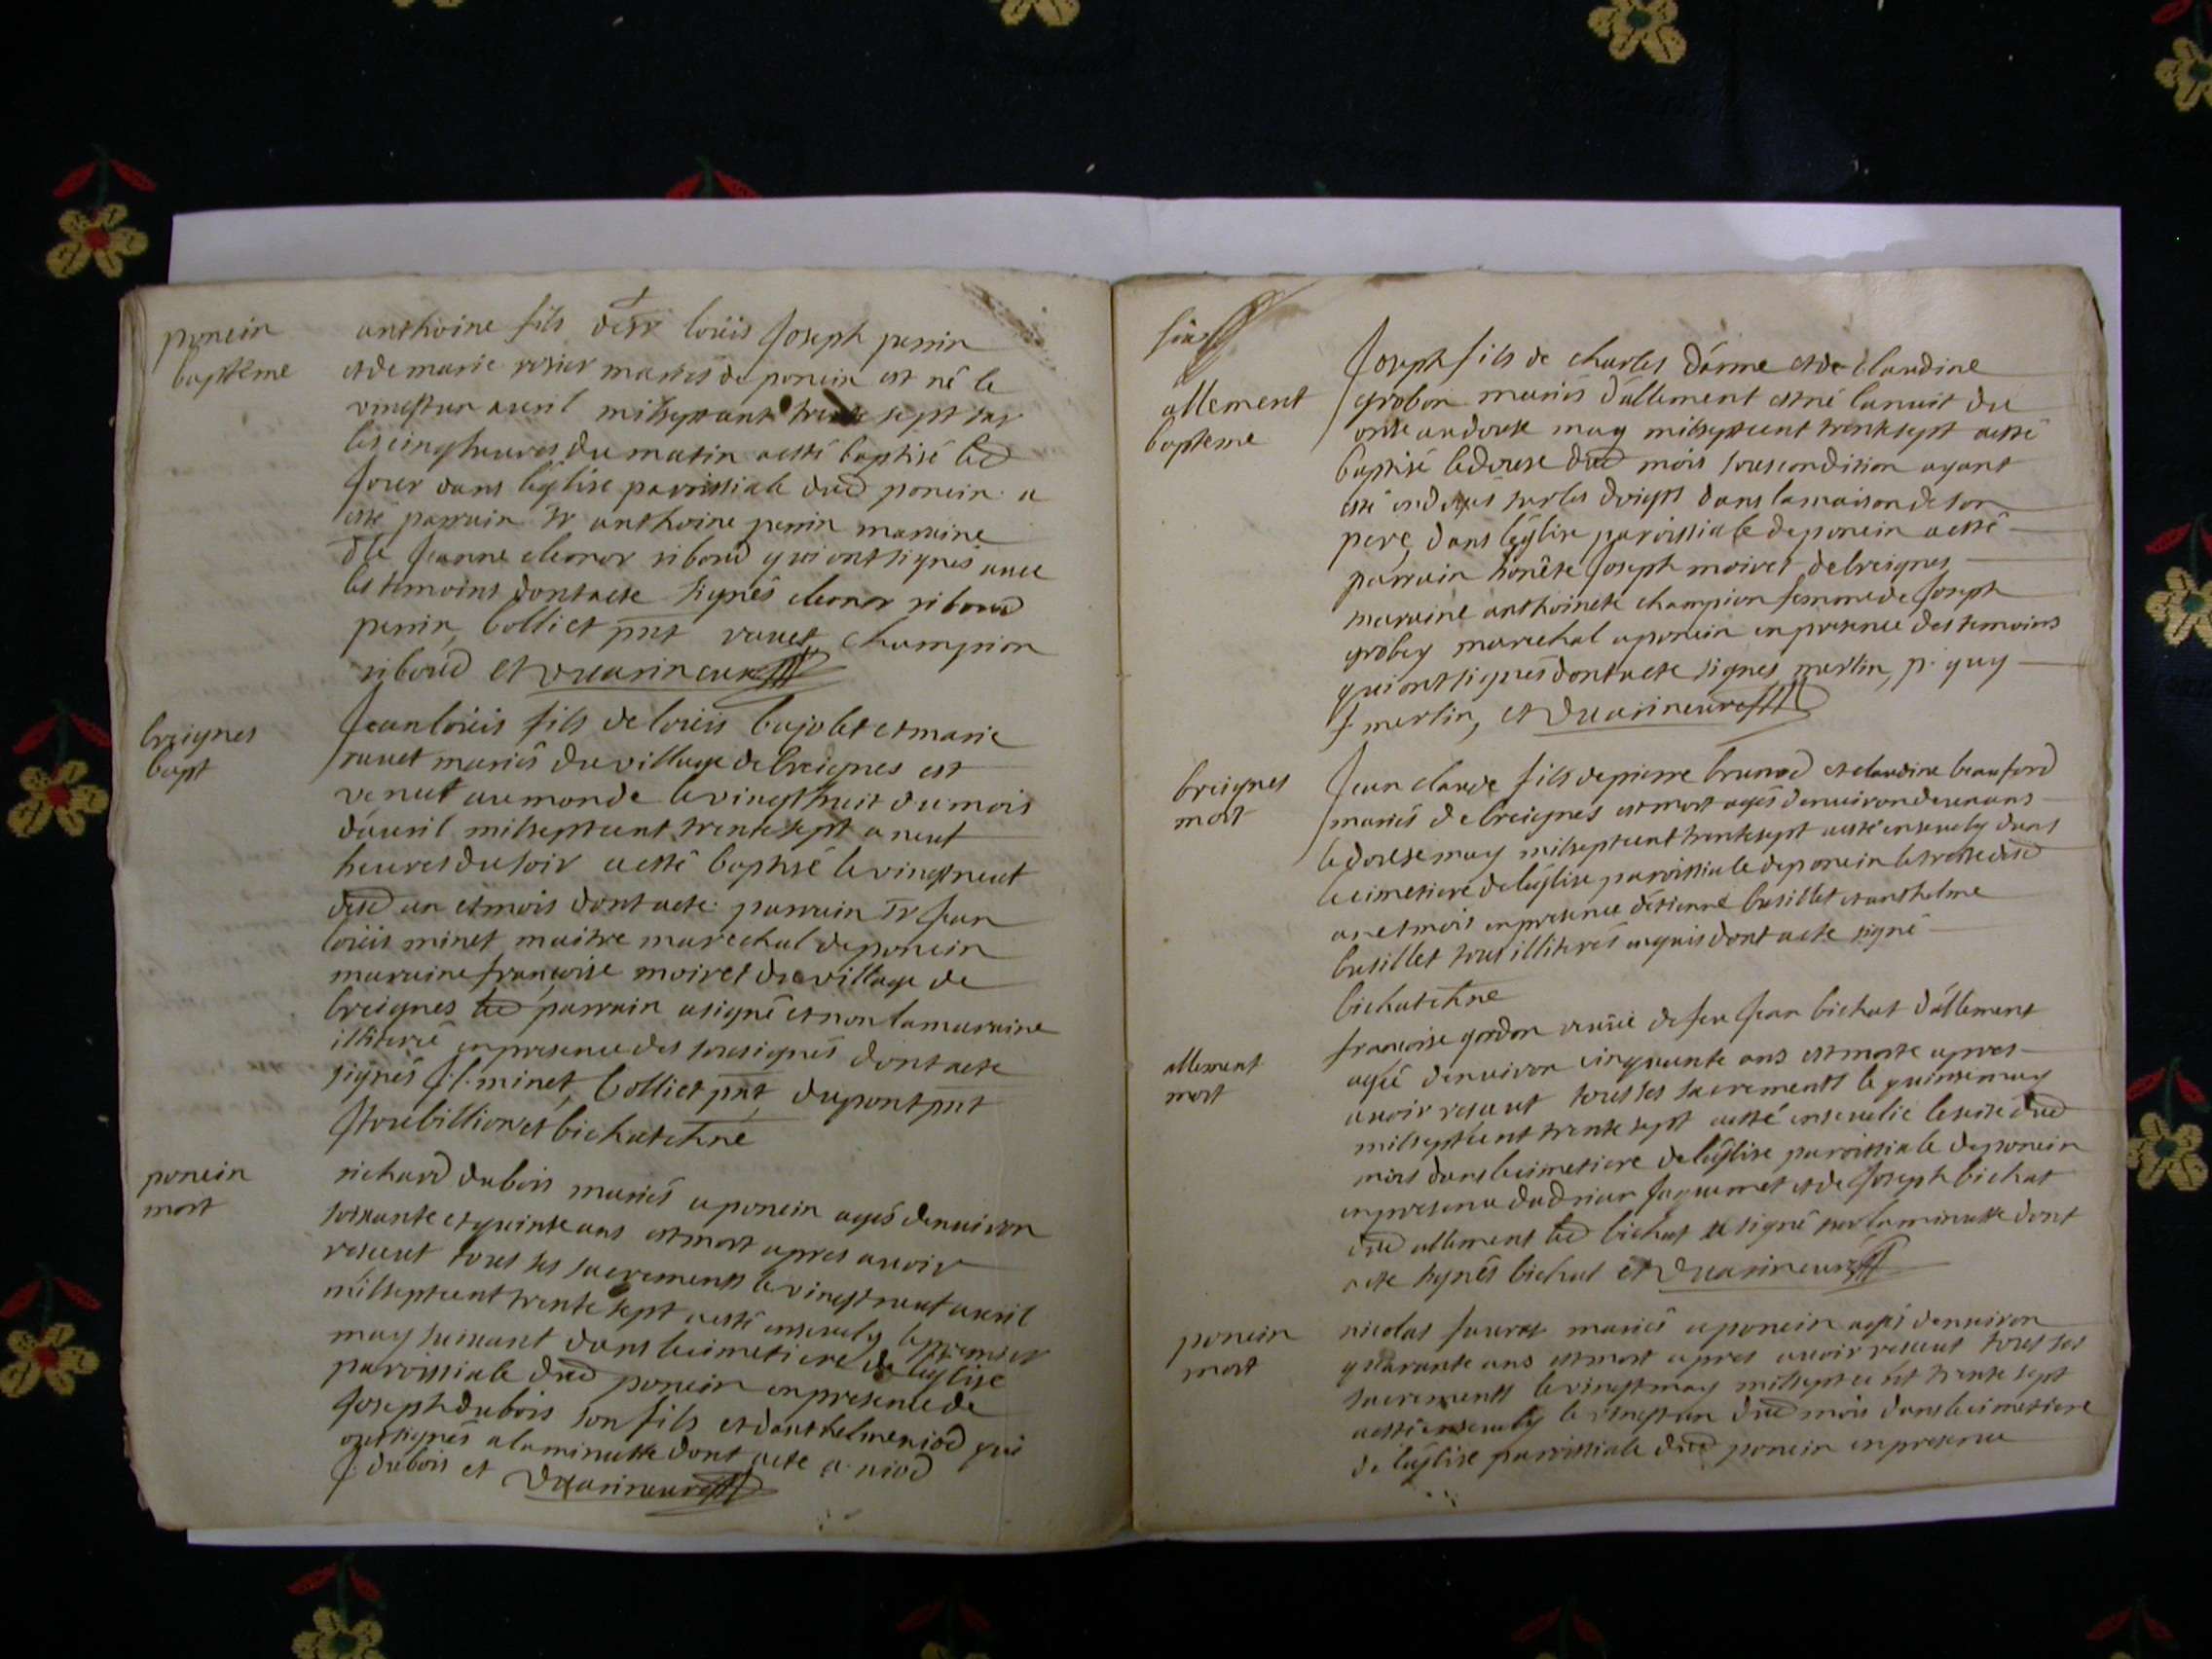 ponein
bapteme
anthoine fils de sr loüis Joseph perrin
et de marie rosier mariés de ponein est né le
vingt un auril mil sept cent trente sept sur
les cinq heures du matin a esté baptisé led
Jour dans l'église parroissiale dud ponein a
esté parrain sr anthoine perrin marraine
dlle Jeanne eleonor riboud qui ont signés auec
les temoins dont acte signés eleonor riboud
perrin, bolliet pnt rauet, champion
riboud et Vuarin curé
breignes
bapt
Jean loüis fils de loüis bajolet et marie
rauet mariés du village de breignes est
venut au monde le vingt huit du mois
d'auril mil sept cent trente sept a neuf
heures du soir a esté baptisé le vingt neuf
desd an et mois dont acte parrain sr Jean
loüis minet maitre marechal de ponein
maraine françoise moiret du village de
breignes led parrain a signé et non la maraine
illiterée en presence des sousignés dont acte
signés J.l. minet, bolliet pnt, dupont pnt
Jtoubillion et bichat
ponein
mort
richard dubois mariés a ponein agés denuiron
soixante et quinze ans est mort apres auoir
receut tous ses sacrements le vingt neuf auril
mil sept cent trente sept a esté enseuely le premier
may suiuant dans le cimetiere de l'eglise
parroissiale dud ponein en presence de
Joseph dubois son fils et danthelme niod qui
ont signés a la minutte dont acte a. niod
J. dubois et Vuarin curé
allement
bapteme
Joseph fils de charles dárme et de claudine
grobon mariés d'allement est né la nuit du
onze au douze may mil sept cent trente sept a esté
baptisé le douze dud mois sous condition ayant
esté ondoyés sur les doigts dans la maison de son
pere, dans l'église paroissiale de ponein a esté
parrain honête Joseph moiret de breignes
maraine anthoinete champion femme de Joseph
grobey marechal a ponein en presence des temoins
qui ont signés dont acte signes, merlin, p. guy
f. merlin, et Vuarin curé
breignes
mort
Jean claude fils de pierre brunod et claudine beauford
mariés de breignes est mort agés denuiron deux ans
le douze may mil sept cent trente sept a esté enseuely dans
le cimetiere de l'église paroissiale de ponein le treize desd
an et mois en presence d'etienne busillet et anthelme
busillet tous illiterés enquis dont acte signé
bichat
allement
mort
francoise gordon veuue de feu Jean bichat d'allement
agée denuiron cinquante ans est morte apres
auoir receut tous ses sacrements le quinze may
mil sept cent trente sept a esté enseuelie le seize dud
mois dans le cimetiere de l'église paroissiale de ponein
en presence dadrian Jaquemet et de Joseph bichat
dud allement led bichat a signé sur la minutte dont
acte signés bichat et Vuarin curé
ponein
mort
nicolas Jauret mariés a ponein agés denuiron
quarante ans est mort apres auoir receut tous ses
sacrements le vingt may mil sept cent trente sept
a esté enseuely le vingt un dud mois dans le cimetiere
de l'église paroissiale dud ponein en presence